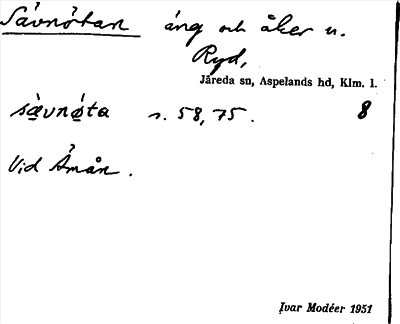 Sävnötan äng och åker u.
Ryd,
Järeda sn, Aspelands hd, Klm. l.
sävnöta s. 58, 75. 8
Vid Åmån.
Ivar Modéer 1951